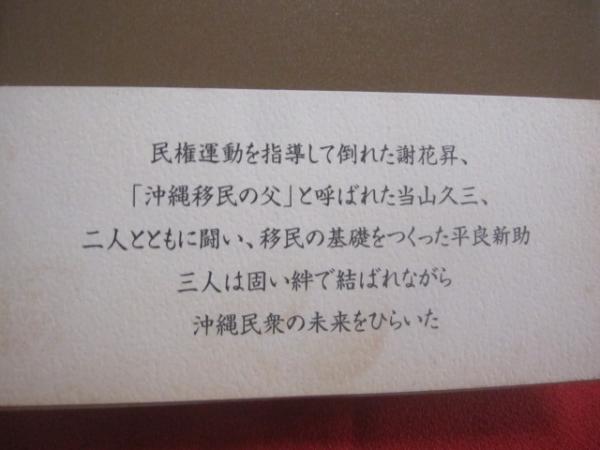 民権運動を指導して倒れた謝花昇、
「沖縄移民の父」と呼ばれた当山久三、
二人とともに闘い、移民の基礎をつくった平良新助
三人は固い絆で結ばれながら
沖縄民衆の未来をひらいた